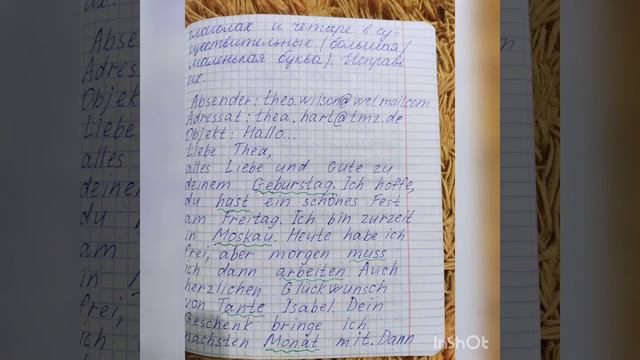 их.
Absender
Adress
Objekt
Liebe
alles
deinem
du
am
in
frei,
ich
глаголах и четыре в су-
ществительных (большая/
маленькая буква). Исправь
их.
Absender: theo.wilson@wetmail.com
Adressat: thea.hart@tmz.de
Objekt: Hallo...
Liebe Thea,
alles Liebe und Gute zu
deinem Geburstag. Ich hoffe,
du hast ein schönes Fest
am Freitag. Ich bin zurzeit
in Moskau. Heute habe ich
frei, aber morgen muss
ich dann arbeiten Auch
herzlichen Glückwunsch
von Tante Isabel. Dein
Geschenk bringe ich
nächsten Monat mit. Dann
InShOt